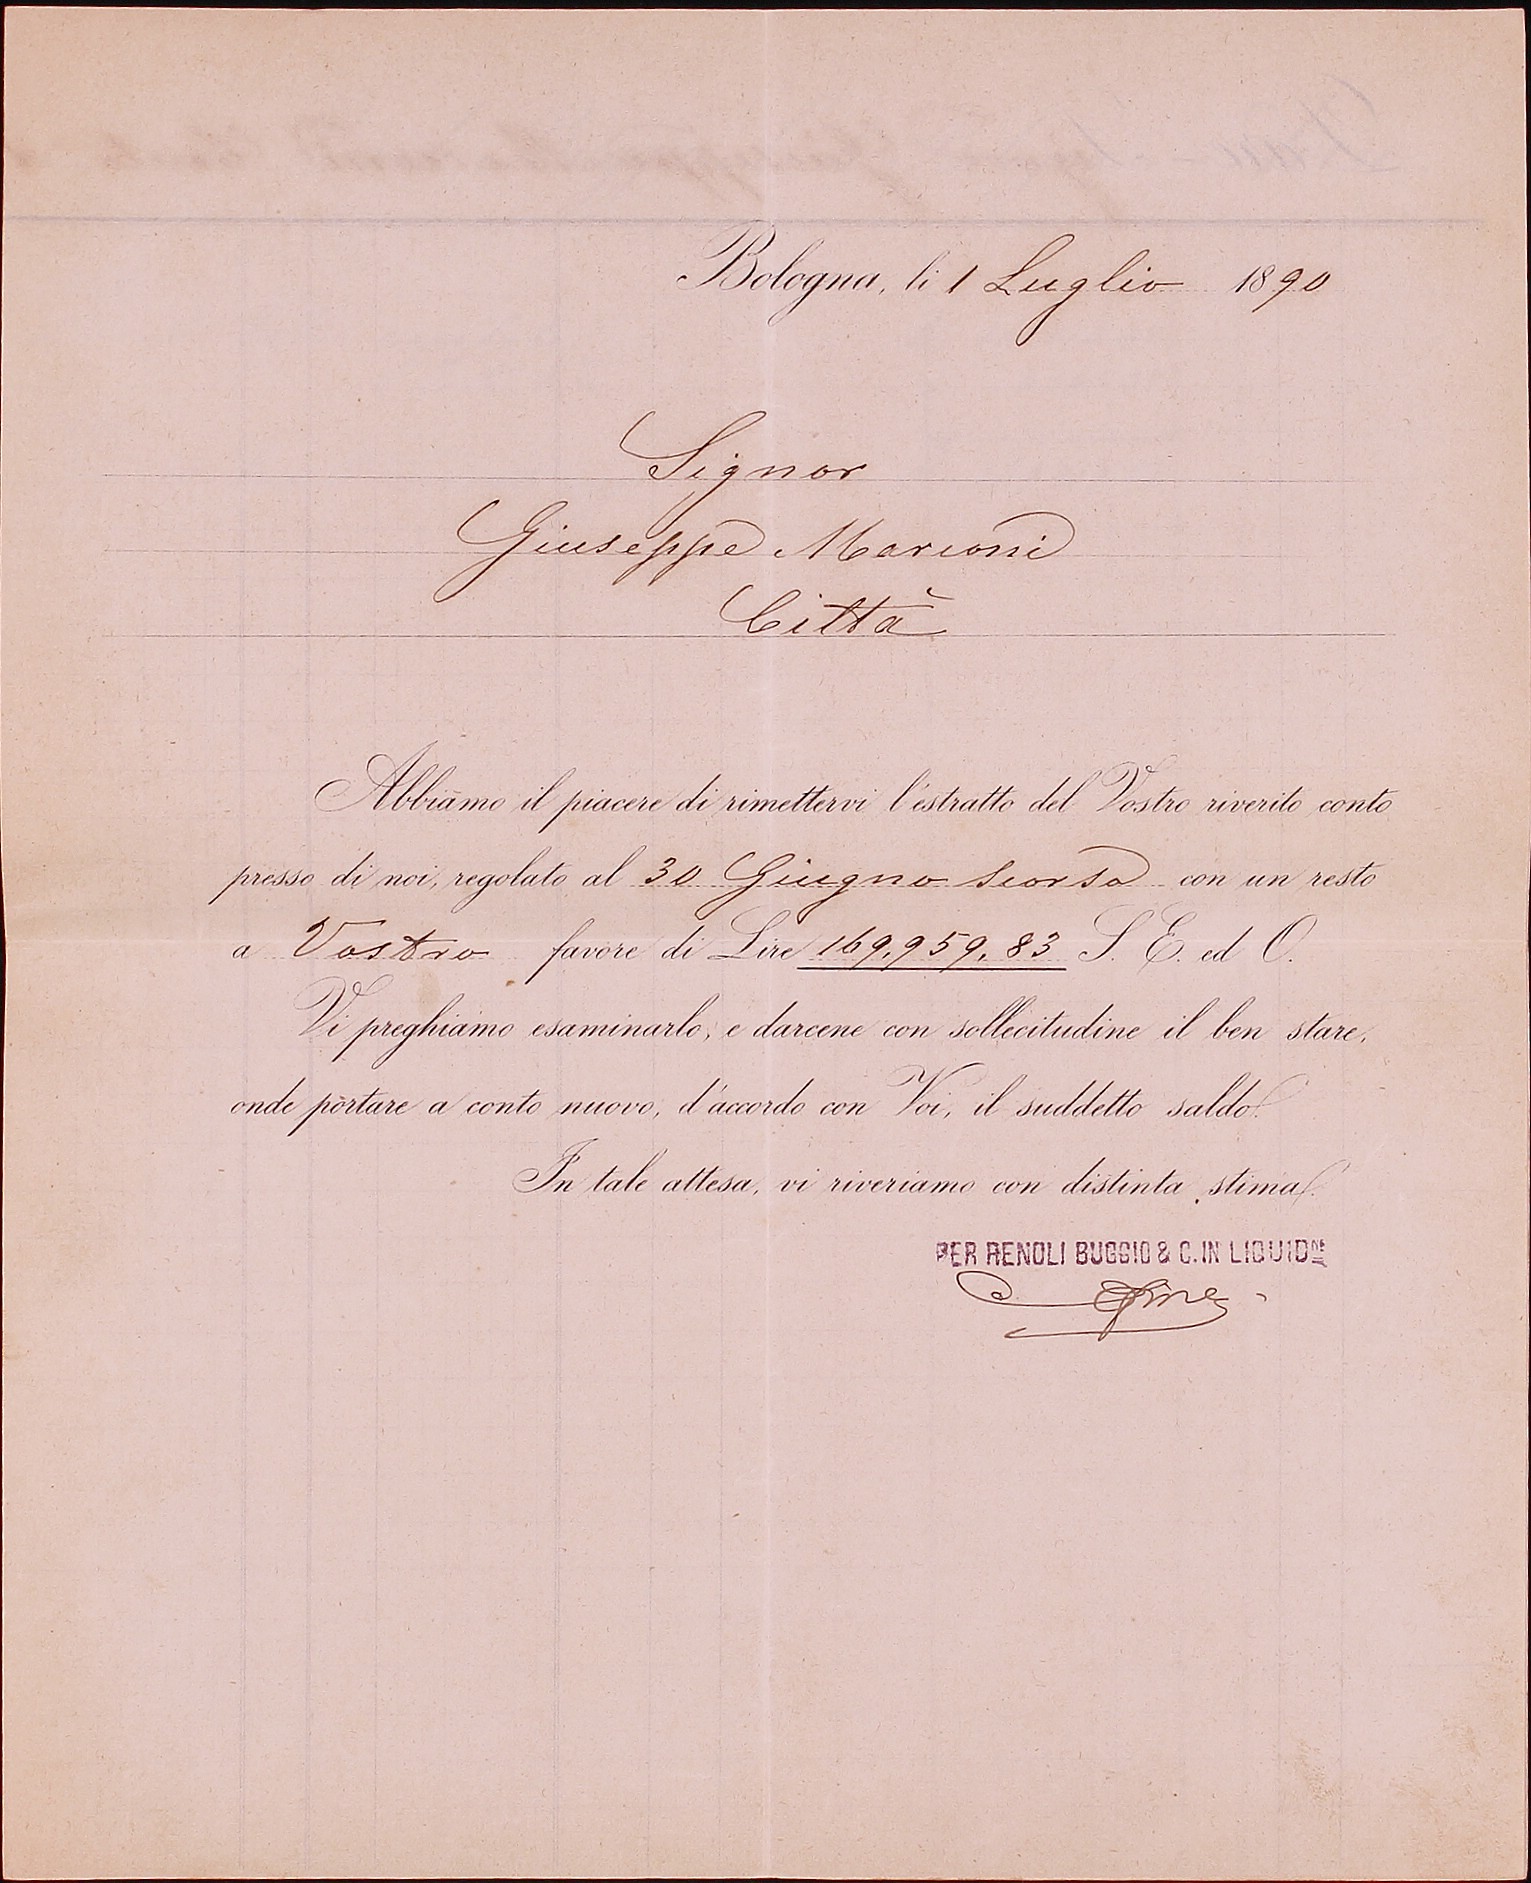 Bologna, li 1 Luglio 1890
Signor
Giuseppe Marconi
Città
Abbiamo il piacere di rimettervi l'estratto del Vostro riverito conto
presso di noi, regolato al 30 Giugno scorso con un resto
a Vostro favore di Lire 169,959,83 S. E. ed O.
Vi preghiamo esaminarlo, e darcene con sollecitudine il ben stare,
onde portare a conto nuovo, d'accordo con Voi, il suddetto saldo.
In tale attesa, vi riveriamo con distinta stima.
PER RENOLI BUGGIO & C. IN LIQUIDNE